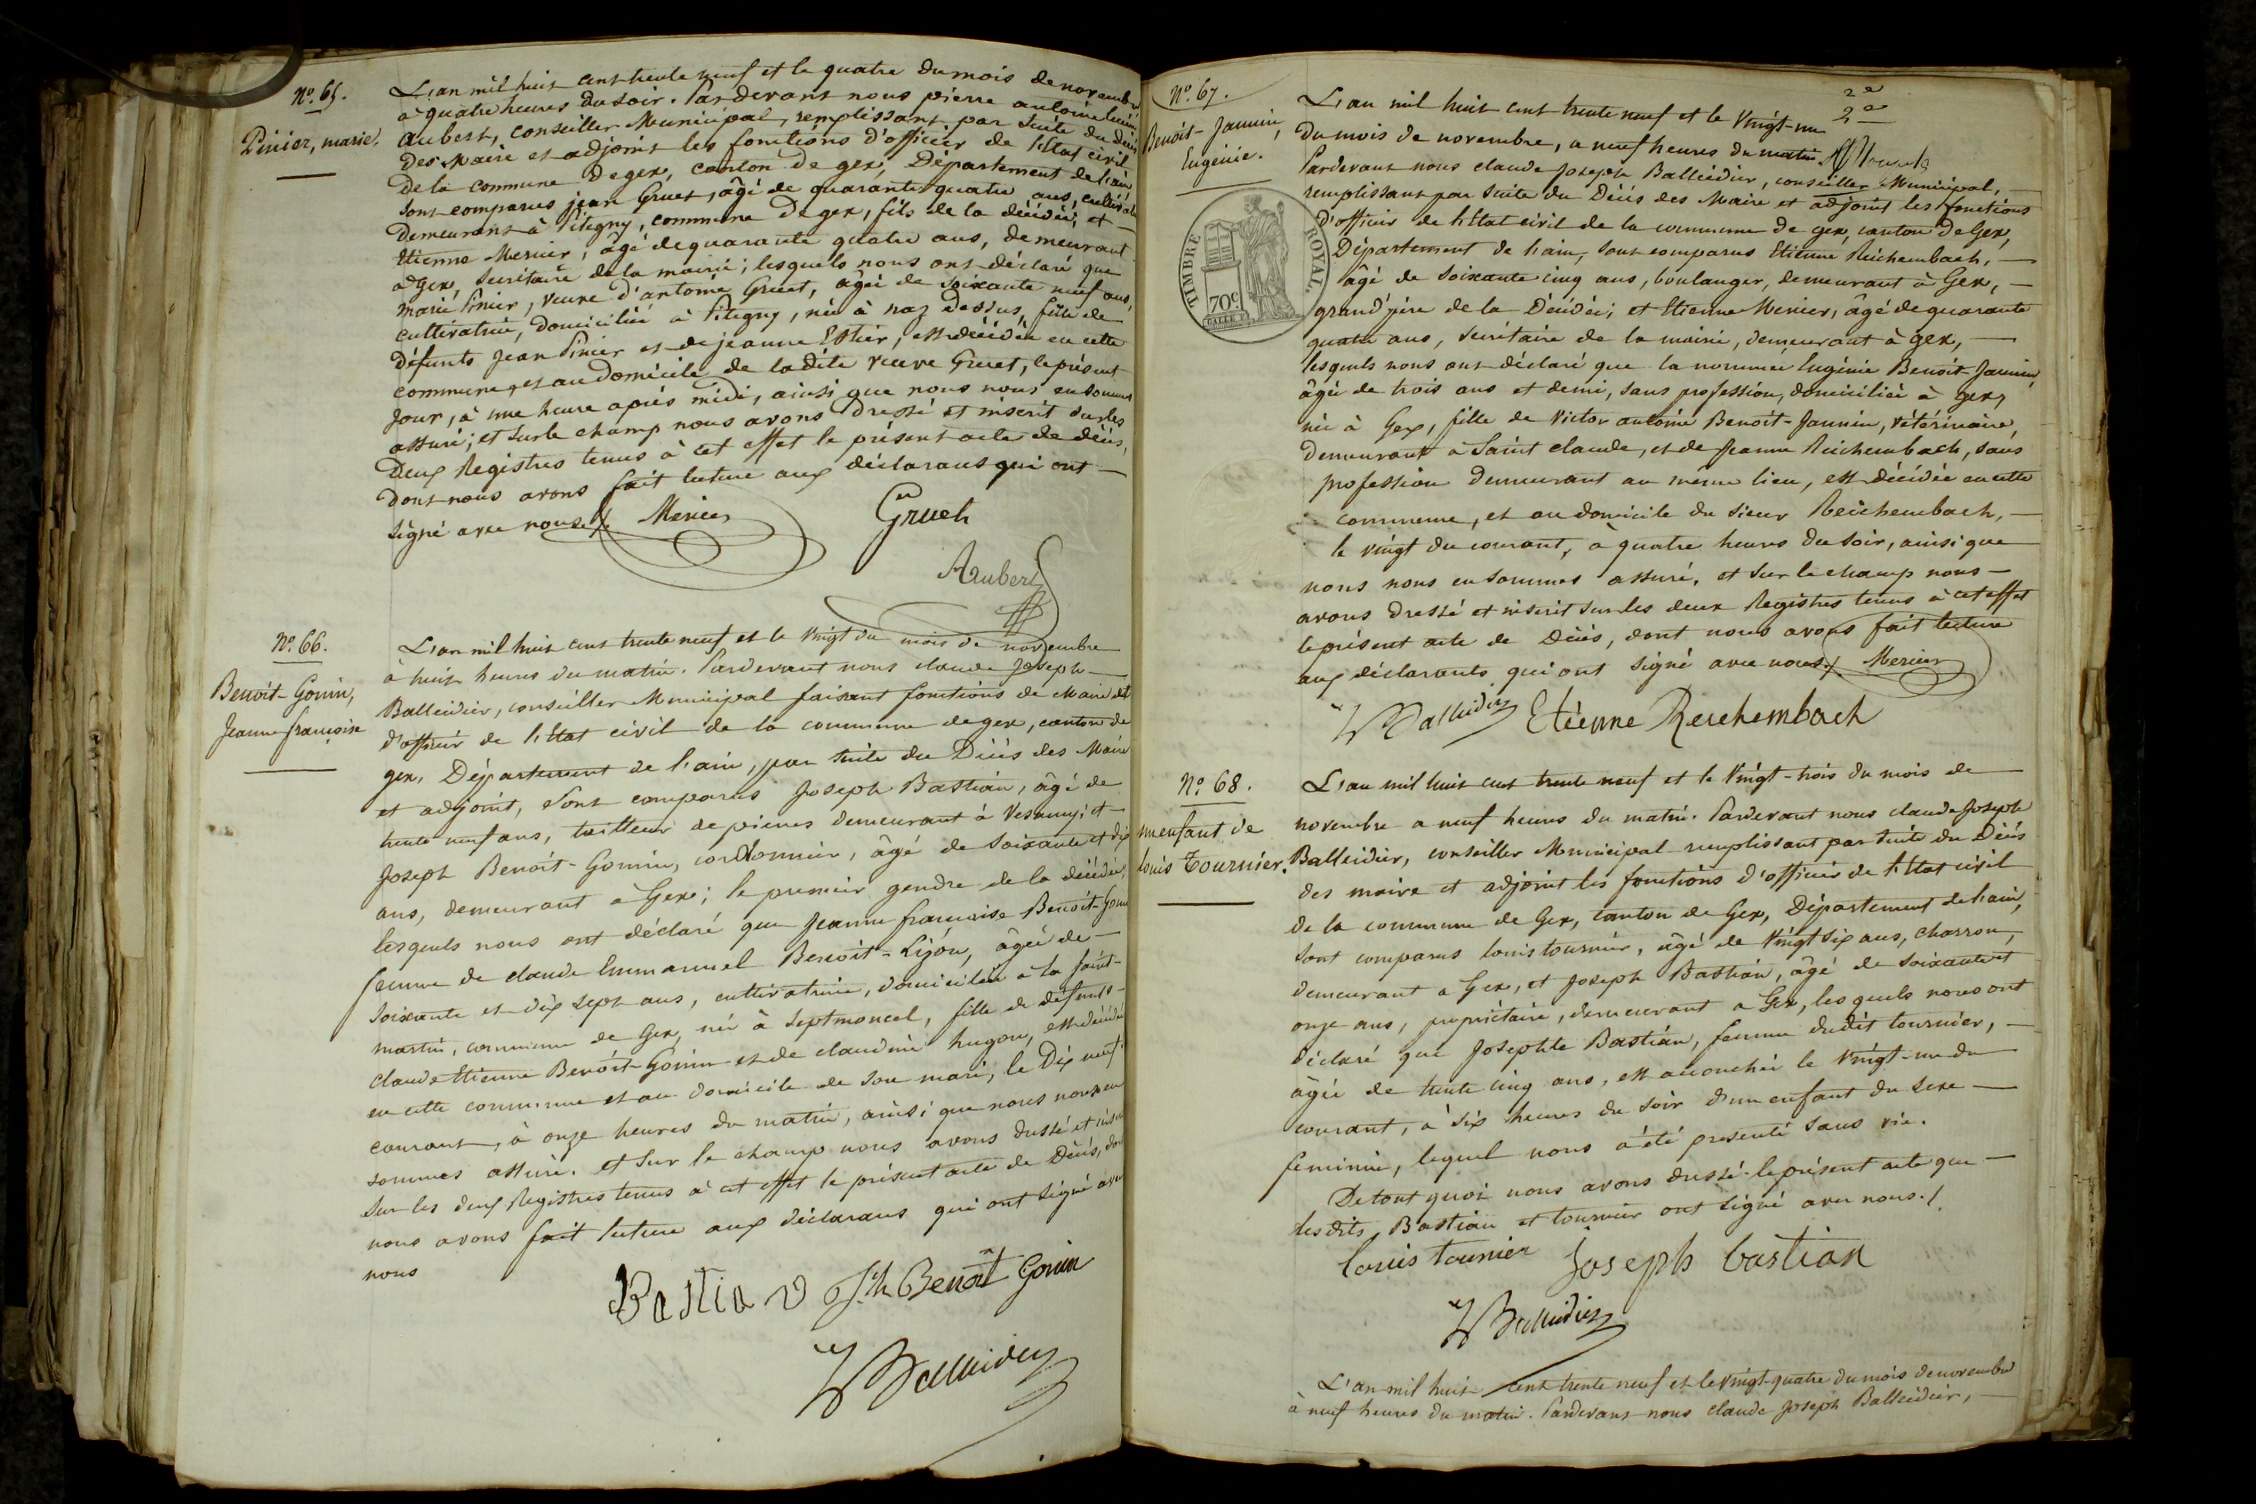 No. 65.
Pinier, marie.
L'an mil huit cent trente neuf et le quatre du mois de novembre
à quatre heures du soir. Pardevant nous pierre antoine
Aubert, conseiller Municipal, remplissant par suite du Décès
Des Maire et adjoint les fonctions d'officier de l'état civil
De la commune de gex, canton de gex, Département de l'ain
sont comparus jean Gruet, âgé de quarante quatre ans, cultivateur
Demeurant à Pitegny, commune de gex, fils de la décédée, et
Etienne Mercier, âgé de quarante quatre ans, demeurant
à Gex, secrétaire de la mairie; lesquels nous ont déclaré que
marie Pinier, veuve d'antoine Gruet, âgée de soixante neuf ans,
cultivatrice, domiciliée à Pitegny, née à naz Dessus, fille de
défunts jean Pinier et de jeanne Estier, est décédée en cette
commune, et au domicile de la dite veuve Gruet, le présent
jour, à une heure après midi, ainsi que nous nous en sommes
assuré; et sur le champ nous avons dressé et inscrit sur les
Deux Registres tenus à cet effet le présent acte de décès,
dont nous avons fait lecture aux déclarans qui ont
signé avec nous. Mercier Gruet
Aubert
No. 66.
Benoit-Gonin,
Jeanne françoise
L'an mil huit cent trente neuf et le vingt du mois de novembre
à huit heures du matin. Pardevant nous claude Joseph
Balleidier, conseiller Municipal faisant fonctions de Maire et
d'officier de l'état civil de la commune de gex, canton de
gex, Département de l'ain, par suite du Décès des Maire
et adjoint, sont comparus Joseph Bastian, âgé de
trente neuf ans, tailleur de pierres demeurant à Vesancy; et
Joseph Benoit-Gonin, cordonnier, âgé de soixante et dix
ans, demeurant à Gex; le premier gendre de la décédée,
lesquels nous ont déclaré que Jeanne françoise Benoit-Gonin
femme de claude Emmanuel Benoit-Lizon, âgée de
soixante et dix sept ans, cultivatrice, domiciliée à la faut-
martin, commune de Gex, née à Septmoncel, fille de défunts
claude Etienne Benoit-Gonin et de claudine hugon, est décédée
en cette commune et au domicile de son mari, le Dix neuf
courant, à onze heures du matin, ainsi que nous nous en
sommes assuré. et sur le champ nous avons dressé et inscrit
sur les deux Registres tenus à cet effet le présent acte de Décès, dont
nous avons fait lecture aux déclarans qui ont signé avec
nous
Bastian Jh. Benoit Gonin
Balleidier
No. 67.
Benoit-Jannin,
Eugénie.
TIMBRE ROYAL.
70c.
2e
2e
L'an mil huit cent trente neuf et le vingt-un
du mois de novembre, à neuf heures du matin
Pardevant nous claude Joseph Balleidier, conseiller Municipal,
remplissant par suite du Décès des Maire et adjoint les fonctions
d'officier de l'état civil de la commune de gex, canton de Gex,
Département de l'ain, sont comparus Etienne Reichembach,
âgé de soixante cinq ans, boulanger, demeurant à Gex,
grand'père de la Décédée; et Etienne Mercier, âgé de quarante
quatre ans, secrétaire de la mairie, demeurant à gex,
lesquels nous ont déclaré que la nommée Eugénie Benoit-Jannin,
âgée de trois ans et demi, sans profession, domiciliée à gex,
née à Gex, fille de Victor antoine Benoit-Jannin, vétérinaire,
Demeurant à Saint claude, et de Jeanne Reichembach, sans
profession demeurant au même lieu, est décédée en cette
commune, et au domicile du sieur Reichembach,
le vingt du courant, à quatre heures du soir, ainsi que
nous nous en sommes assuré, et sur le champ nous
avons dressé et inscrit sur les deux Registres tenus à cet effet
le présent acte de Décès, dont nous avons fait lecture
aux déclarants qui ont signé avec nous. Mercier
Balleidier Etienne Reichembach
No. 68.
un enfant de
Louis Tournier.
L'an mil huit cent trente neuf et le vingt-trois du mois de
novembre à neuf heures du matin. Pardevant nous claude Joseph
Balleidier, conseiller Municipal remplissant par suite du Décès
des maire et adjoint les fonctions d'officier de l'Etat civil
de la commune de Gex, canton de Gex, Département de l'ain,
sont comparus louis tournier, âgé de vingt six ans, charron,
demeurant à Gex, et Joseph Bastian, âgé de soixante et
onze ans, propriétaire, demeurant à Gex, lesquels nous ont
déclaré que Josephte Bastian, femme dudit tournier,
âgée de trente cinq ans, est accouchée le vingt-un du
courant, à six heures du soir d'un enfant du sexe
feminin, lequel nous a été presenté sans vie.
De tout quoi nous avons dressé le présent acte que
lesdits Bastian et tournier ont signé avec nous./.
louis tournier joseph bastian
Balleidier
L'an mil huit cent trente neuf et le vingt-quatre du mois de novembre
à neuf heures du matin. Pardevant nous claude Joseph Balleidier,